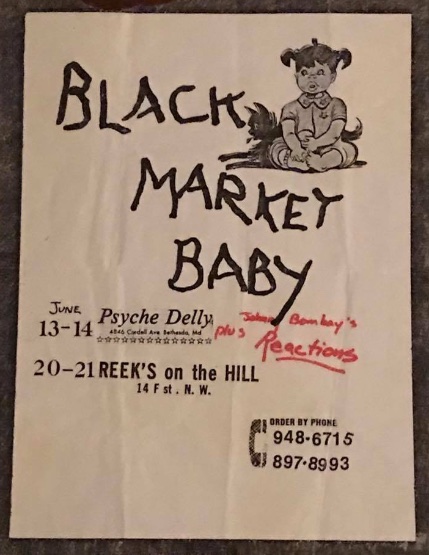 BLACK
MARKET
BABY
JUNE
13-14 Psyche Delly
4846 Cordell Ave Bethesda, Md.
plus Bombay's
Reactions
20-21 REEK'S on the HILL
14 F st. N. W.
ORDER BY PHONE
948-6715
897-8993